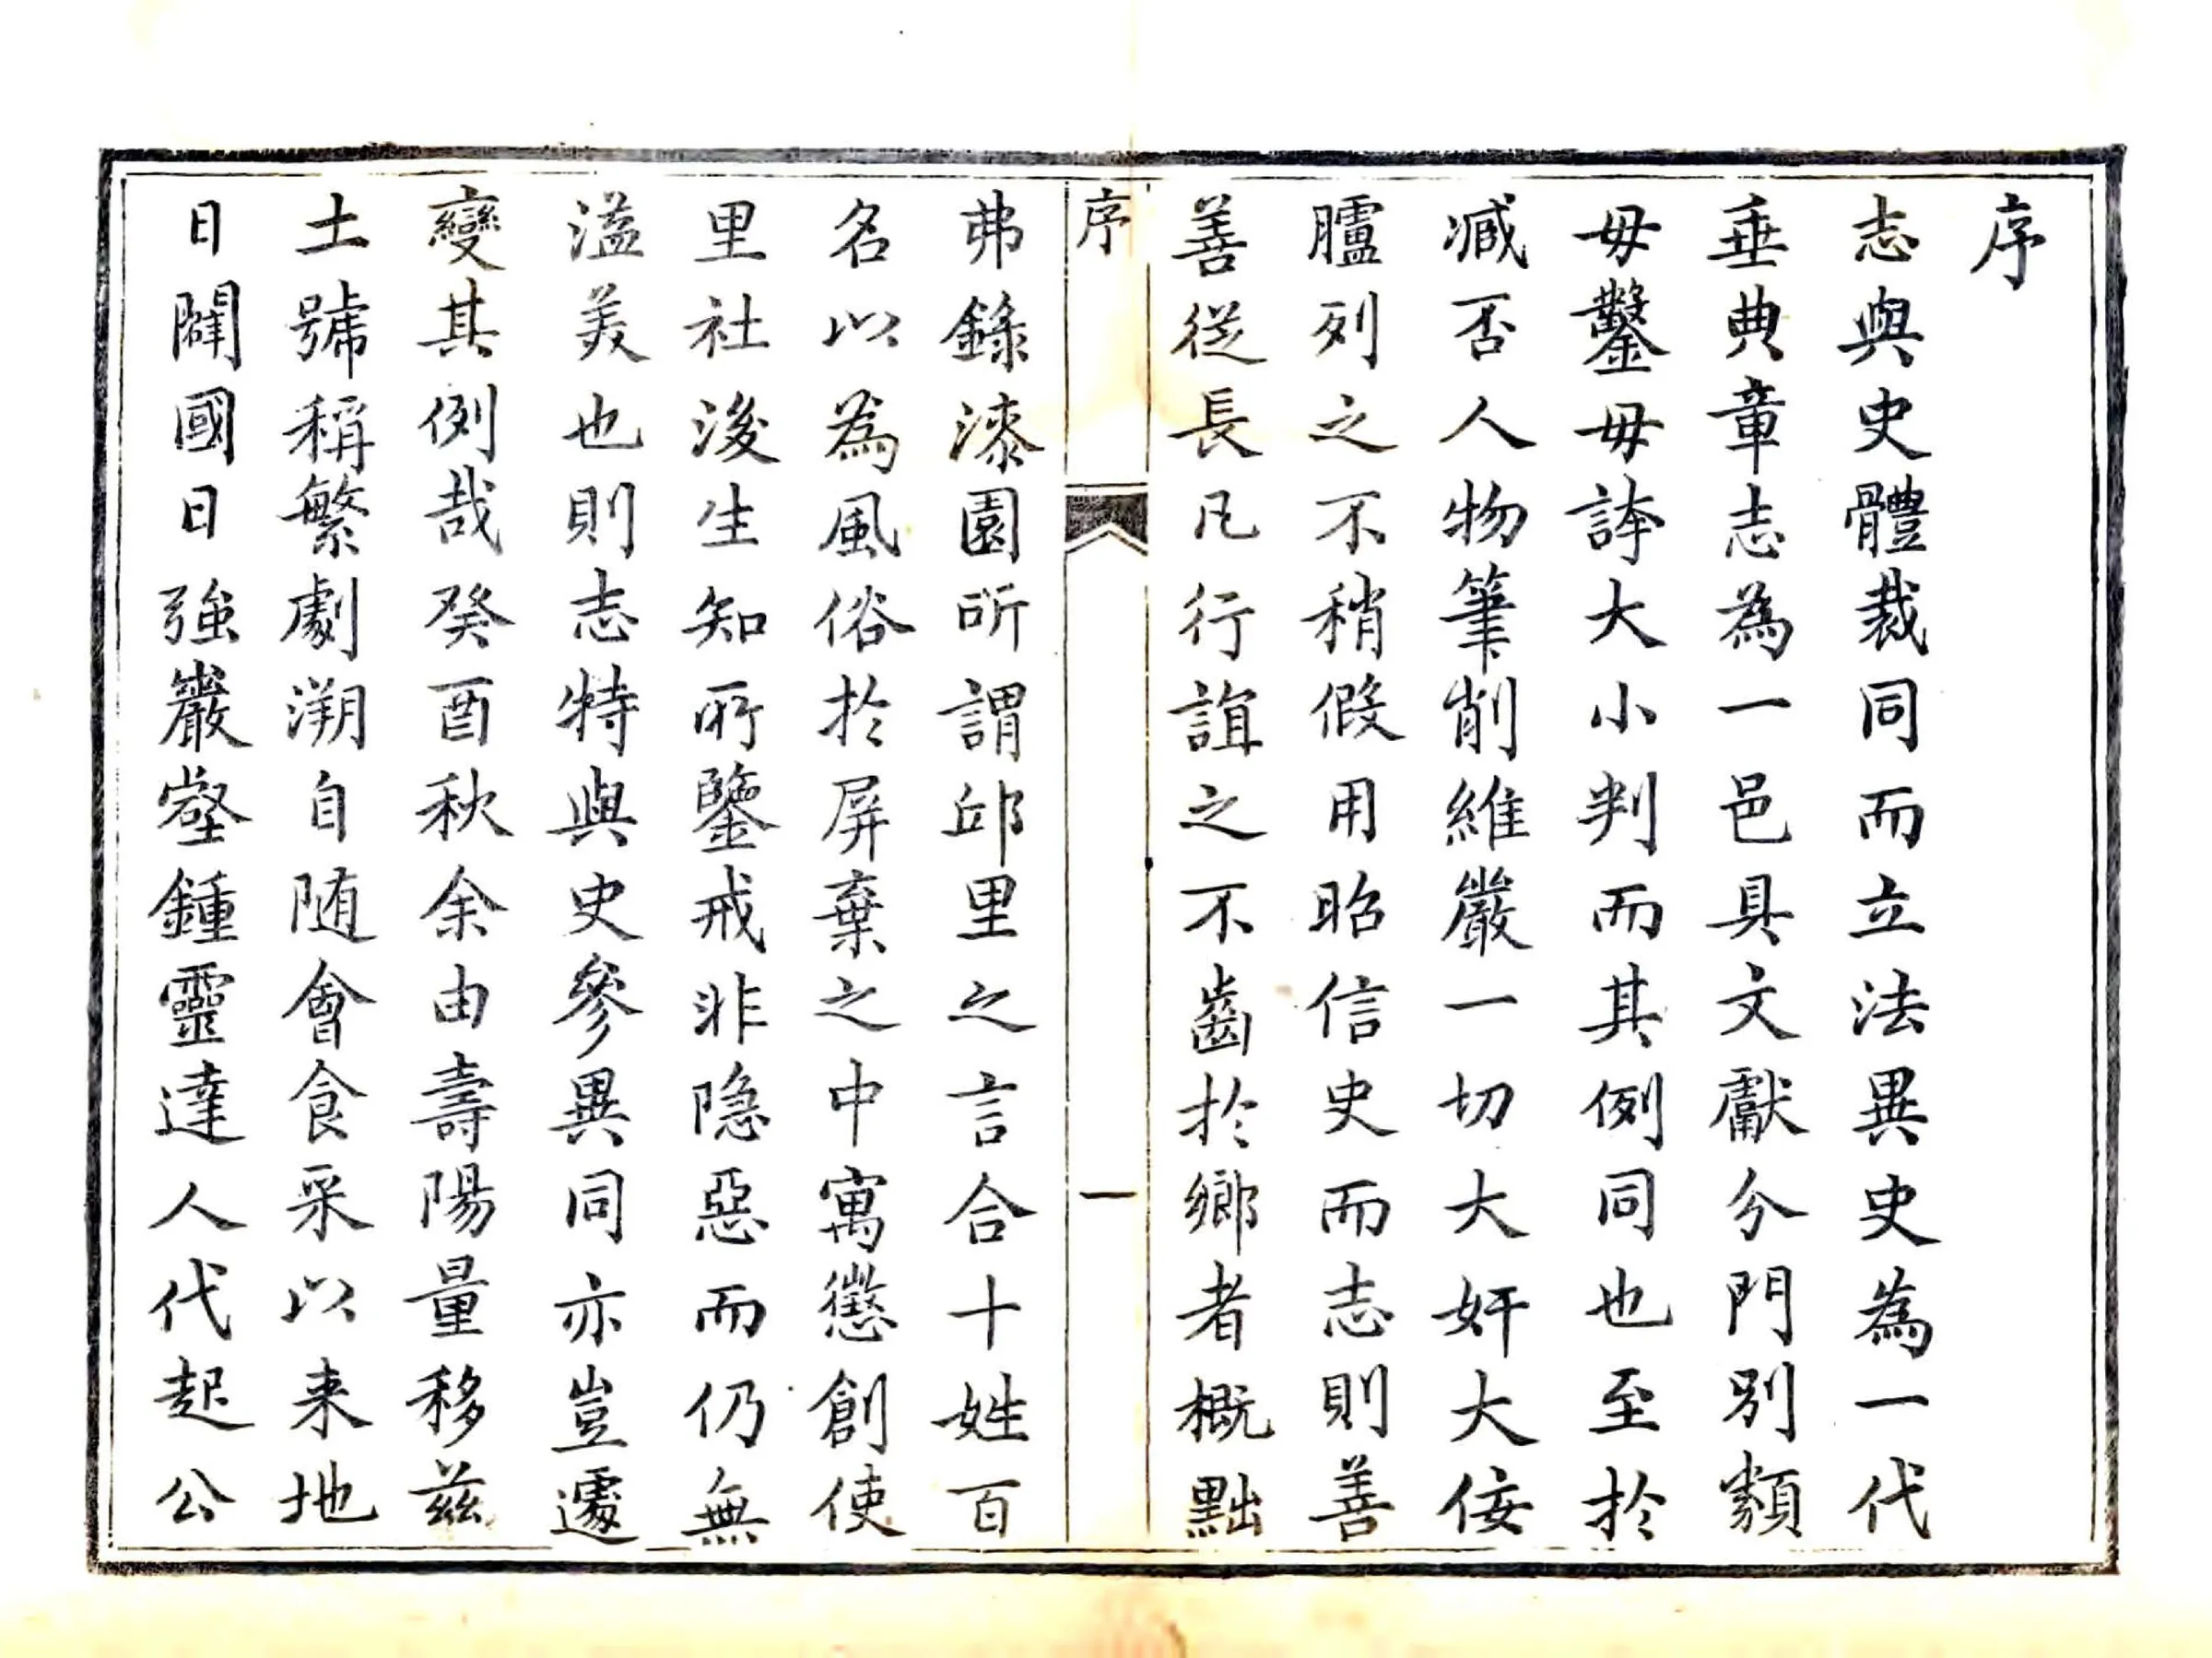 序
志與史體裁同而立法異史為一代
垂典章志為一邑具文獻分門別類
毋鑿毋誇大小判而其例同也至於
臧否人物筆削維嚴一切大奸大佞
臚列之不稍假用昭信史而志則善
善從長凡行誼之不齒於鄉者概黜
序
一
弗錄漆園所謂邱里之言合十姓百
名以為風俗於屏棄之中寓懲創使
里社後生知所鑒戒非隐惡而仍無
溢美也則志特與史參異同亦豈遽
變其例哉癸酉秋余由壽陽量移茲
土號稱繁劇溯自随會食采以来地
日闢國日強巖壑鍾靈達人代起公